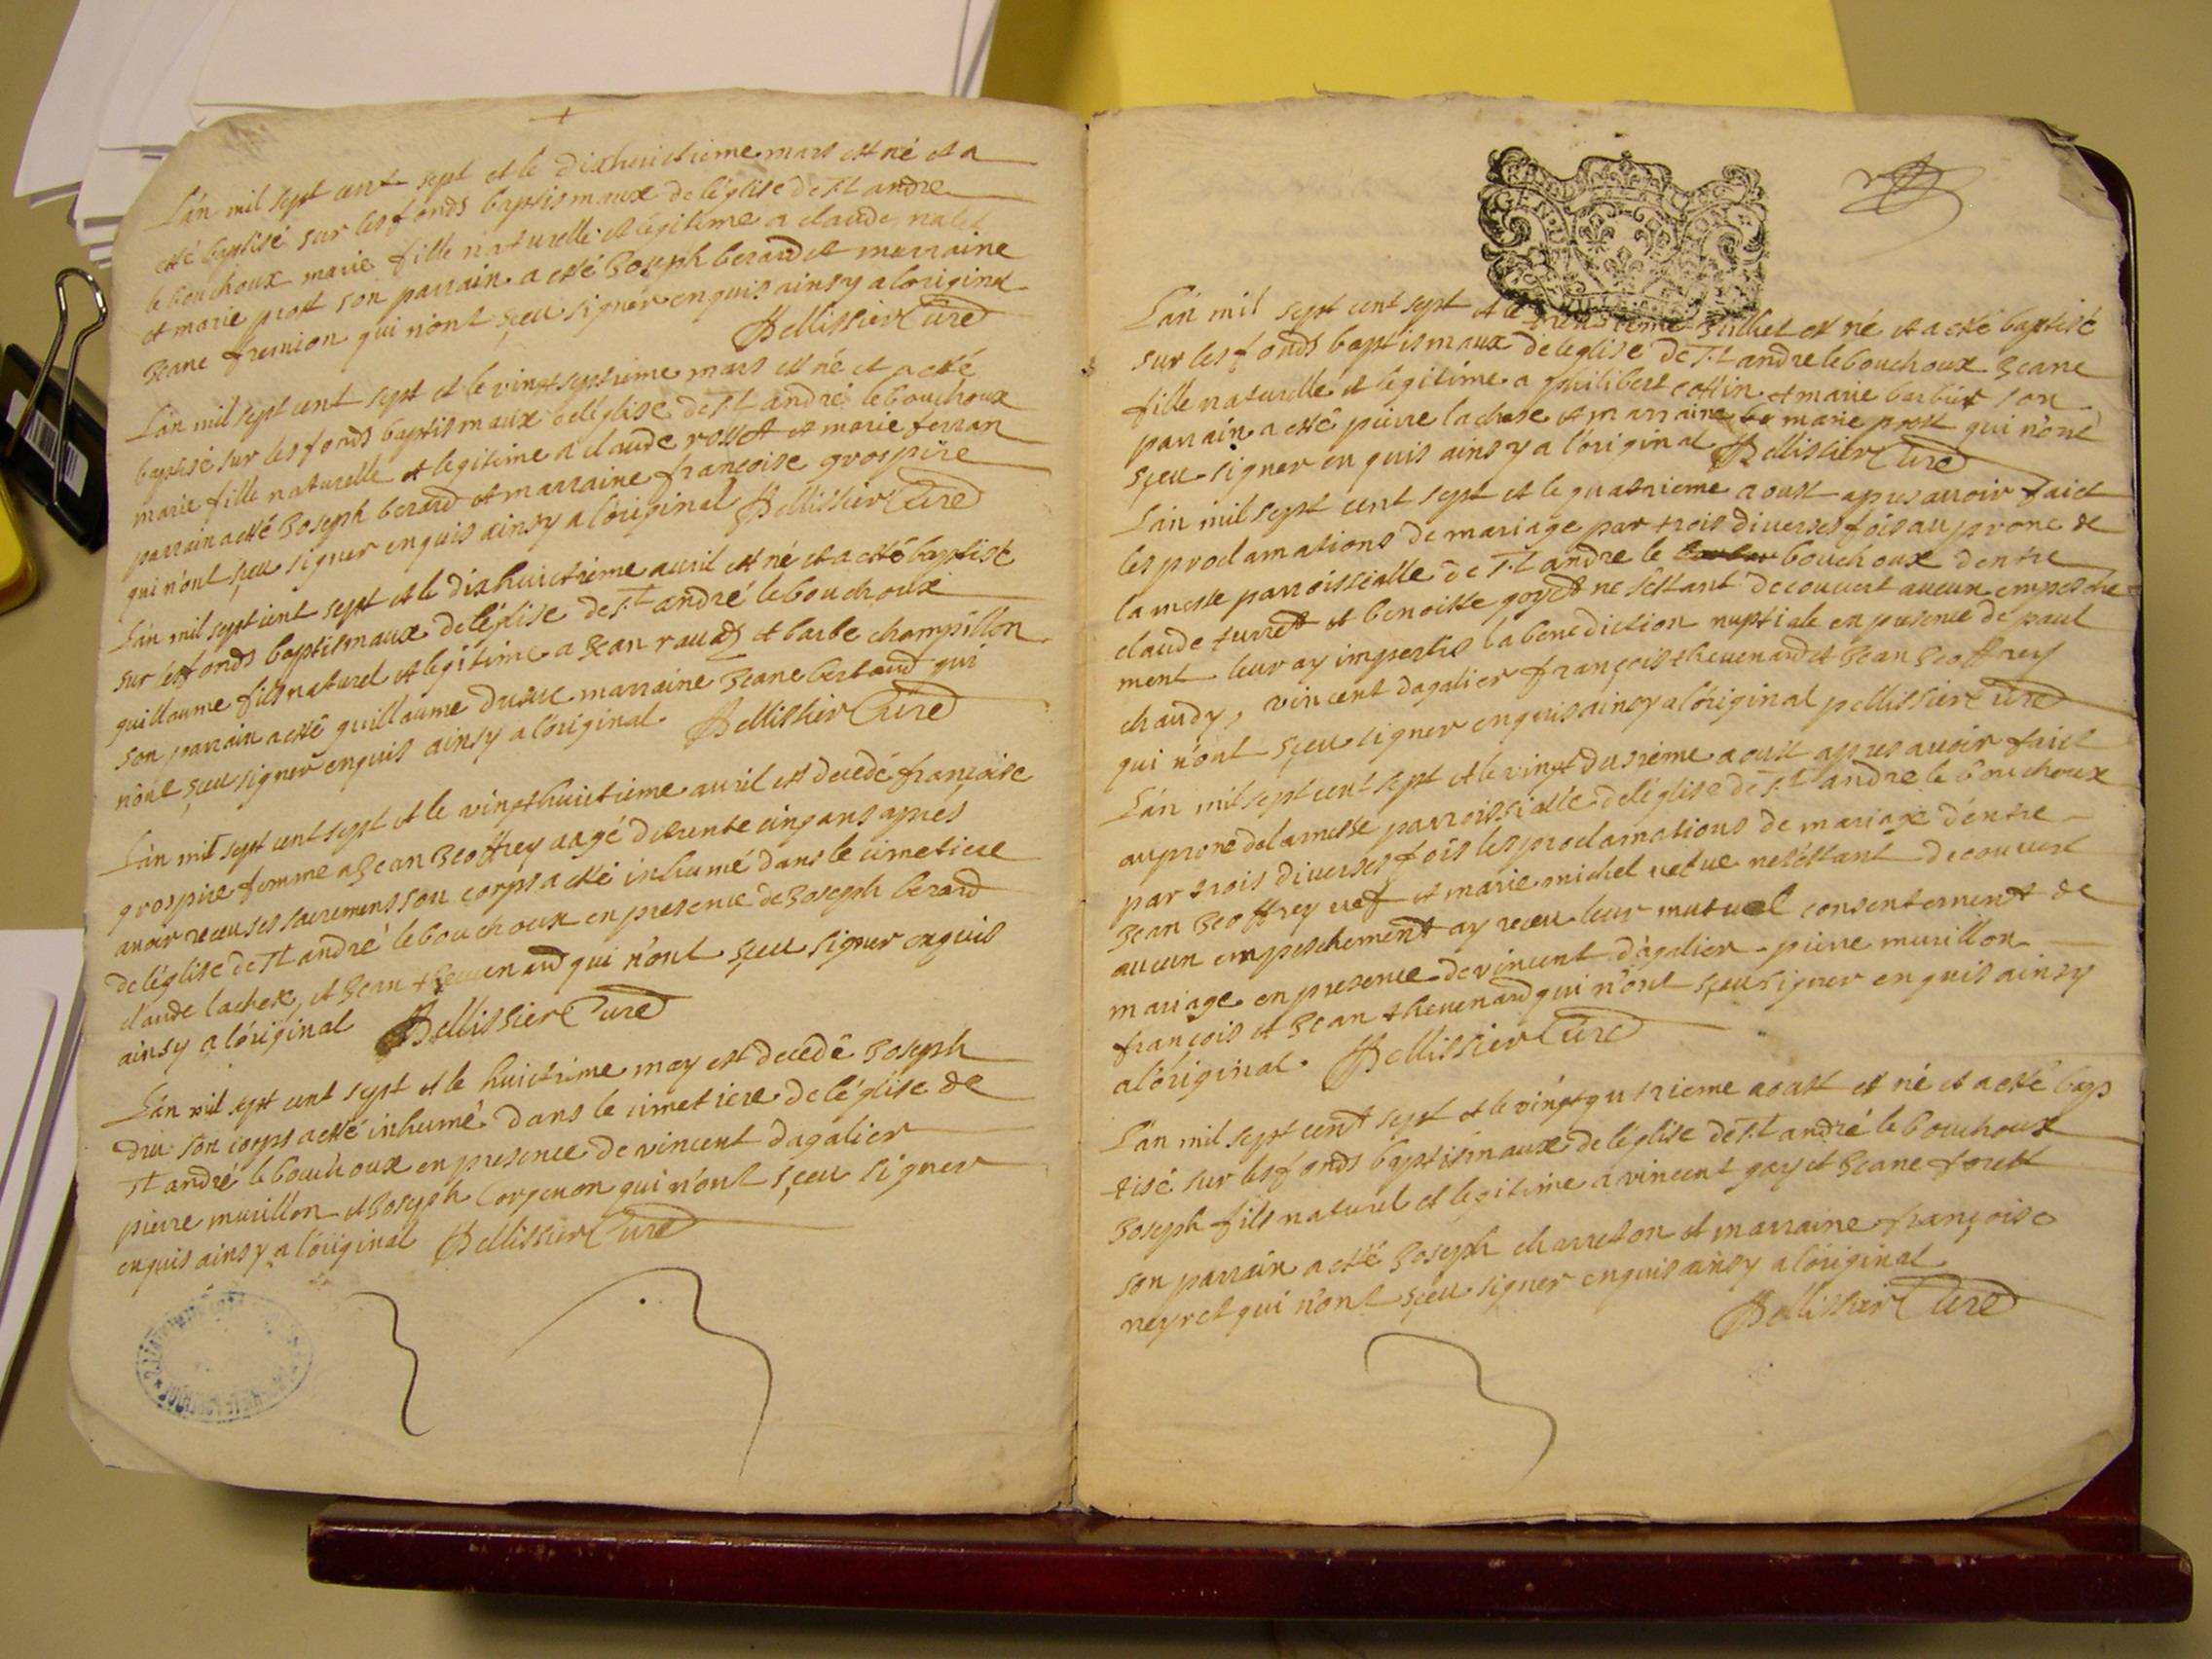 L'an mil sept cent sept et le dixhuictieme mars est né et a
esté baptisé sur les fonds baptismaux de l'église de St andre
le bouchoux marie fille naturelle et legitime a claude nalet
et marie prost son parrain a esté Joseph berard et marraine
Jeane fremion qui n'ont sçeu signer enquis ainsy a l'original
Pellissier Curé
L'an mil sept cent sept et le vingt septieme mars est né et a esté
baptisé sur les fonds baptismaux de l'église de St andré le bouchoux
marie fille naturelle et legitime a claude rosset et marie ferran
parrain a esté Joseph berard et marraine françoise grospire
qui n'ont sçeu signer enquis ainsy a l'original Pellissier Curé
L'an mil sept cent sept et le dixhuictieme auril est né et a esté baptisé
sur les fonds baptismaux de l'église de St andré le bouchoux
guillaume fils naturel et legitime a Jean raudz et barbe champillon
son parrain a esté guillaume dusuc marraine Jeane bertaud qui
n'ont sçeu signer enquis ainsy a l'original Pellissier Curé
L'an mil sept cent sept et le vingthuictieme auril est decedé françoise
grospire femme a Jean Jeoffrey aagé de trente cinq ans apres
auoir receu ses sacremens son corps a esté inhumé dans le cimetiere
de l'église de St andré le bouchoux en presence de Joseph berard
claude lachese, et Jean theuenard qui n'ont sçeu signer enquis
ainsy a l'original Pellissier Curé
L'an mil sept cent sept et le huictieme may est decedé Joseph
dru son corps a esté inhumé dans le cimetiere de l'église de
St andré le bouchoux en presence de vincent dagalier
pierre murillon et Joseph Corgenon qui n'ont sçeu signer
enquis ainsy a l'original Pellissier Curé
GEN
L'an mil sept cent sept et le Juillet est né et a esté baptisé
sur les fonds baptismaux de l'eglise de St andre le bouchoux Jeane
fille naturelle et legitime a philibert cottin et marie barbier son
parrain a esté pierre lachese et marraine marie prost qui n'ont
sçeu signer enquis ainsy a l'original Pellissier Curé
L'an mil sept cent sept et le quatrieme aoust apres auoir faict
les proclamations de mariage par trois diuerses fois au prone de
la messe parroissialle de St andre le bouchoux dentre
claude turrel et benoiste goyet ne s'estant decouuert aucun empesche
ment leur ay impertis la benediction nuptiale en presence de paul
chaudy, vincent dagalier françois theuenard et Jean Jeoffrey
qui n'ont sçeu signer enquis ainsy a l'original pellissier Curé
L'an mil sept cent sept et le vingt deusieme aoust apres auoir faict
au prone de la messe parroissialle de l'église de St andre le bouchoux
par trois diuerses fois les proclamations de mariage d'entre
Jean Jeoffrey uef et marie michel uefue ne s'estant decouuert
aucun empeschement ay receu leur mutuel consentement de
mariage en presence de vincent dagalier pierre murillon
françois et Jean theuenard qui n'ont sçeu signer enquis ainsy
a l'original. Pellissier Curé
L'an mil sept cent sept et le vingt qutrieme aoust est né et a esté bap
tisé sur les fonds baptismaux de l'église de St andré le bouchoux
Joseph fils naturel et legitime a vincent gay et Jeane foret
son parrain a esté Joseph charreton et marraine françoise
neyret qui n'ont sçeu signer enquis ainsy a l'original
Pellissier Curé